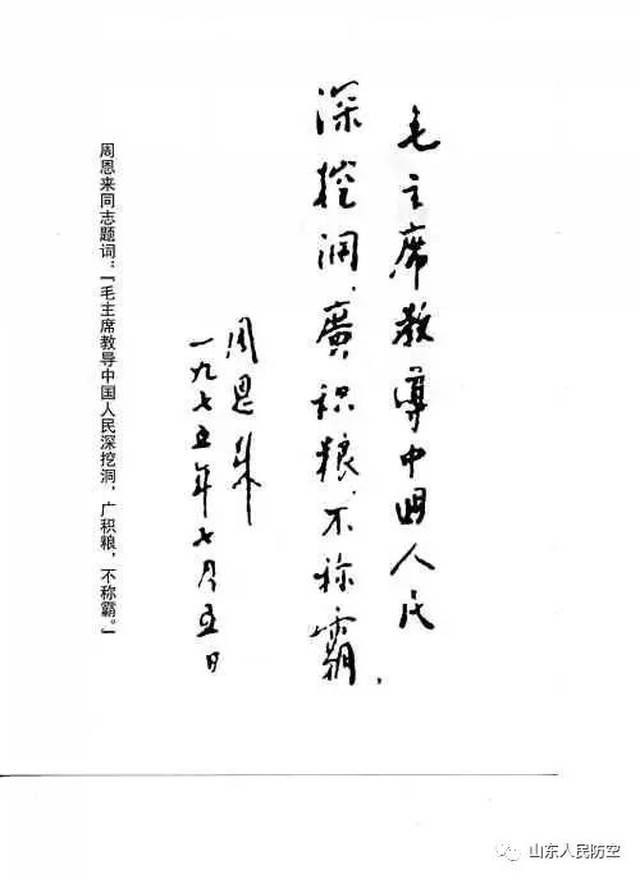 毛主席教导中国人民
深挖洞、廣积粮、不称霸,
周恩来
一九七五年七月五日
周恩来同志题词:「毛主席教导中国人民深挖洞,广积粮,不称霸。」
山东人民防空